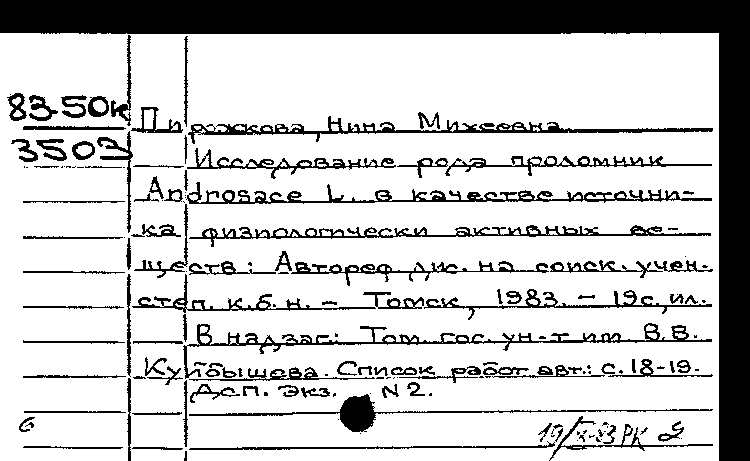 83-50к
3503
Пирожкова, Нина Михеевна
Исследование рода проломник
Androsace L. в качестве источни-
ка физиологически активных ве-
ществ: Автореф. дис. на соиск. учен.
степ. к.б.н. – Томск, 1983. – 19с, ил.
В надзаг.: Том. гос. ун-т им В.В.
Куйбышева. Список работ авт.: с. 18-19.
Дсп. Экз. N 2.
6
19/X-83 РК